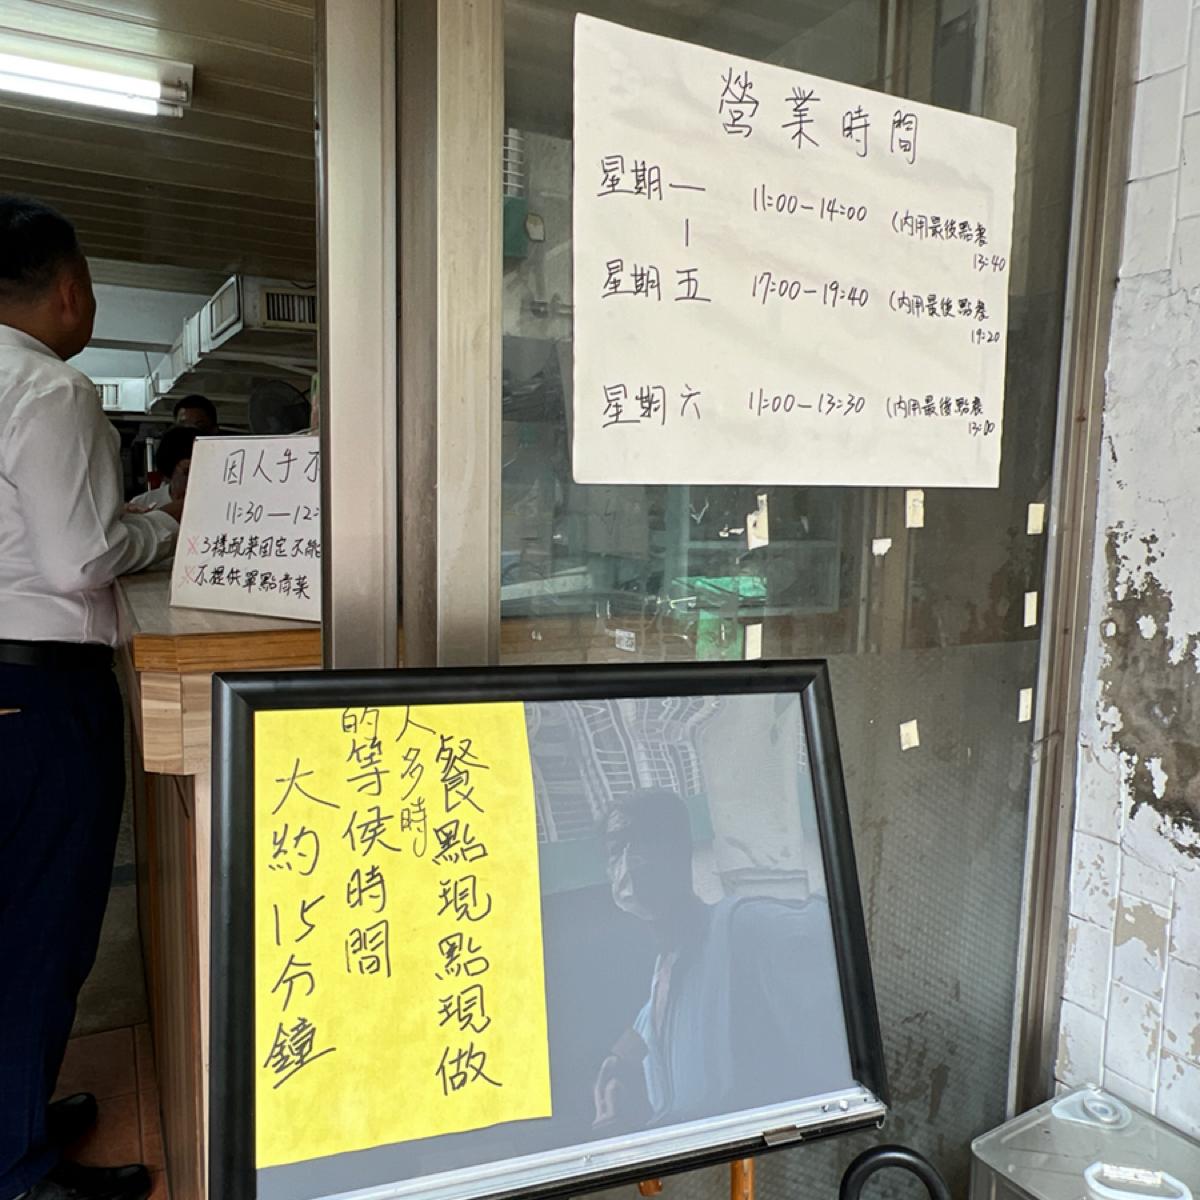 營業時間
星期一
|
星期五
11:00-14:00 (內用最後點餐
13:40
17:00-19:40 (內用最後點餐
19:20
星期六 11:00-13:30 (內用最後點餐
13:00
因人手不
11:30-12:
※3樣配菜固定不能
※不提供單點
餐點現點現做
人多時
的等侯時間
大約15分鐘